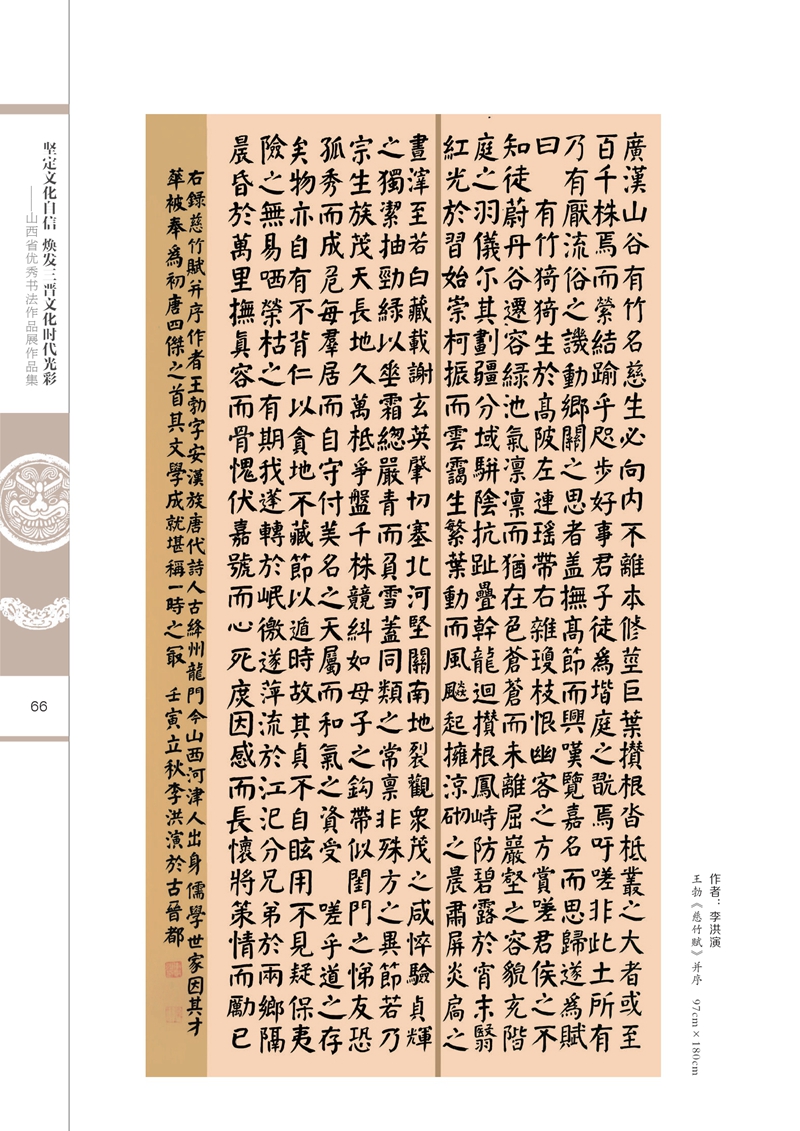 坚定文化自信 焕发三晋文化时代光彩
——山西省优秀书法作品展作品集
66
廣漢山谷有竹名慈生必向内不離本修莖巨葉攢根沓柢叢之大者或至
百千株焉而縈結踰乎咫步好事君子徒為堦庭之翫焉吁嗟非此土所有
乃有厭流俗之譏動鄉關之思者盖撫高節而興嘆覽嘉名而思歸遂為賦
曰 有竹猗猗生於高陂左連瑶帶右雜瓊枝恨幽客之方賞嗟君侯之不
知徒蔚丹谷遷容緑池氣凛凛而猶在色蒼蒼而未離屈巖壑之容貌充階
庭之羽儀尔其劃疆分域駢陰抗趾疊幹龍迴攢根鳳峙防碧露於宵末翳
紅光於習始崇柯振而雲靄生繁葉動而風飈起擁涼砌之晨肅屏炎扃之
晝滓至若白藏載謝玄英肇切塞北河堅關南地裂觀衆茂之咸悴驗貞輝
之獨潔抽勁緑以垂霜緫嚴青而負雪蓋同類之常禀非殊方之異節若乃
宗生族茂天長地久萬柢爭盤千株競糾如母子之鈎帶似閨門之悌友恐
孤秀而成危每羣居而自守付美名之天屬而和氣之資受 嗟乎道之存
矣物亦自有不背仁以貪地不藏節以遁時故其貞不自眩用不見疑保夷
險之無易哂榮枯之有期我蓬轉於岷徼遂萍流於江汜分兄弟於兩鄉隔
晨昏於萬里撫真容而骨愧伏嘉號而心死庶因感而長懷將策情而勵已
右録慈竹賦并序作者王勃字安漢族唐代詩人古絳州龍門今山西河津人出身 儒學世家因其才
華被奉為初唐四傑之首其文學成就堪稱一時之冣 壬寅立秋李洪演於古晉都
作者：李洪演
王勃《慈竹赋》并序 97cm×180cm